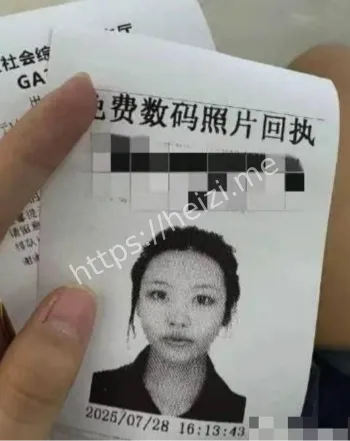 社会综
厅
GA
免费数码照片回执
https://heizi.me
2025/07/28 16:13:43